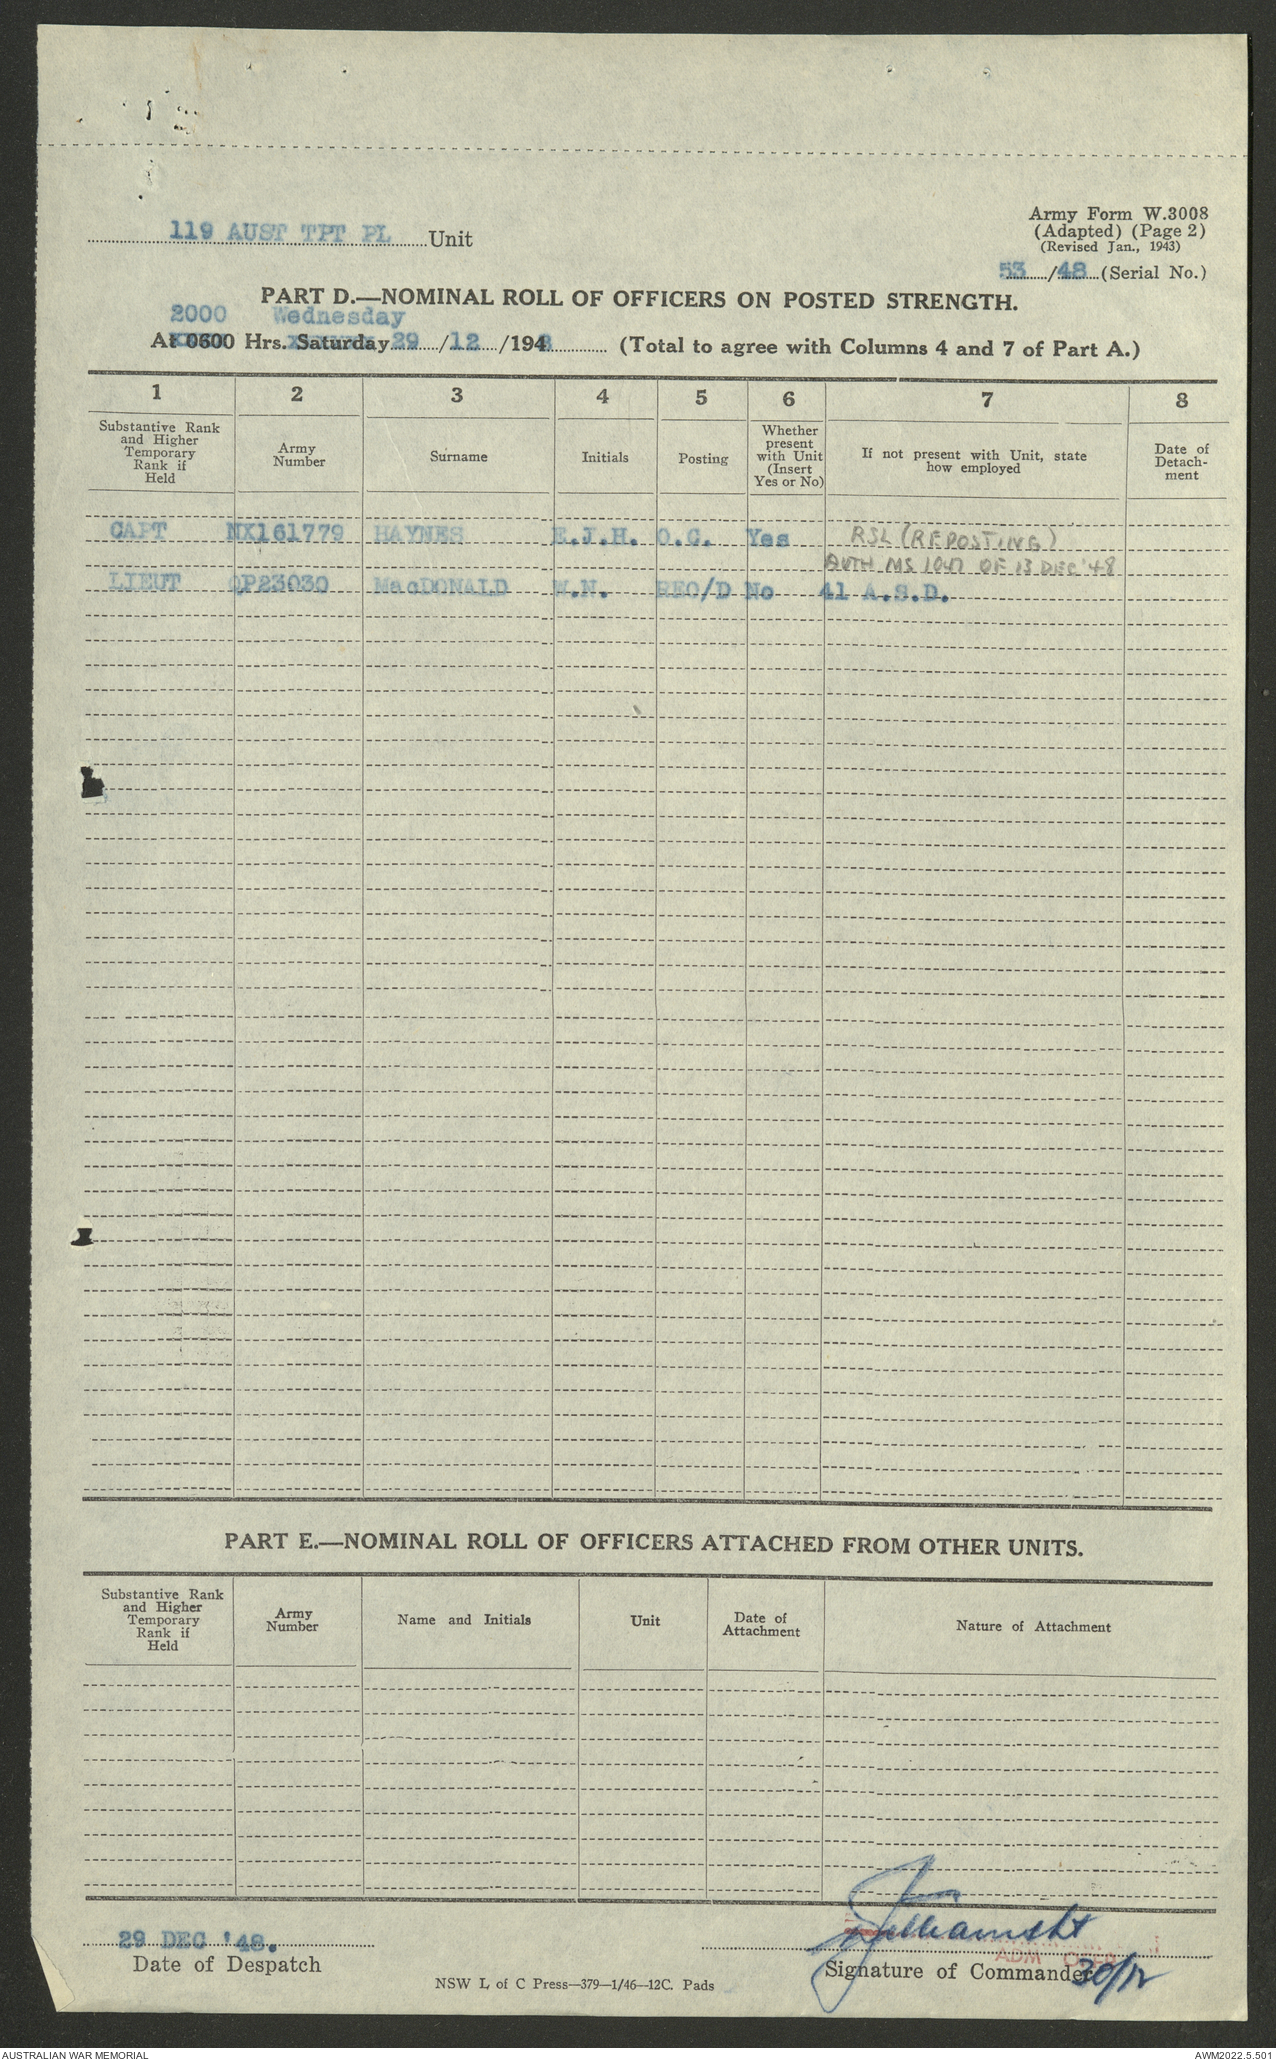 Army Form W.3008
(Adapted) (Page 2)
(Revised Jan., 1943)
119 AUST TPT PL Unit
53/48 (Serial No.)
PART D.—NOMINAL ROLL OF OFFICERS ON POSTED STRENGTH.
2000 Wednesday
At 0600 Hrs. Saturday 29/12/1948 (Total to agree with Columns 4 and 7 of Part A.)
1 2 3 4 5 6 7 8
Substantive Rank and Higher Temporary Rank if Held
Army Number
Surname
Initials
Posting
Whether present with Unit (Insert Yes or No)
If not present with Unit, state how employed
Date of Detach-ment
CAPT NX161779 HAYNES E.J.H. O.C. Yes RSL (REPOSTING)
AUTH MS 1047 OF 13 DEC '48
LIEUT QP23030 MacDONALD W.N. REO/D No 41 A.S.D.
PART E.—NOMINAL ROLL OF OFFICERS ATTACHED FROM OTHER UNITS.
Substantive Rank and Higher Temporary Rank if Held
Army Number
Name and Initials
Unit
Date of Attachment
Nature of Attachment
29 DEC '48.
Date of Despatch
ADM
Signature of Commander 30/12
NSW L of C Press—379—1/46—12C. Pads
AUSTRALIAN WAR MEMORIAL
AWM2022.5.501